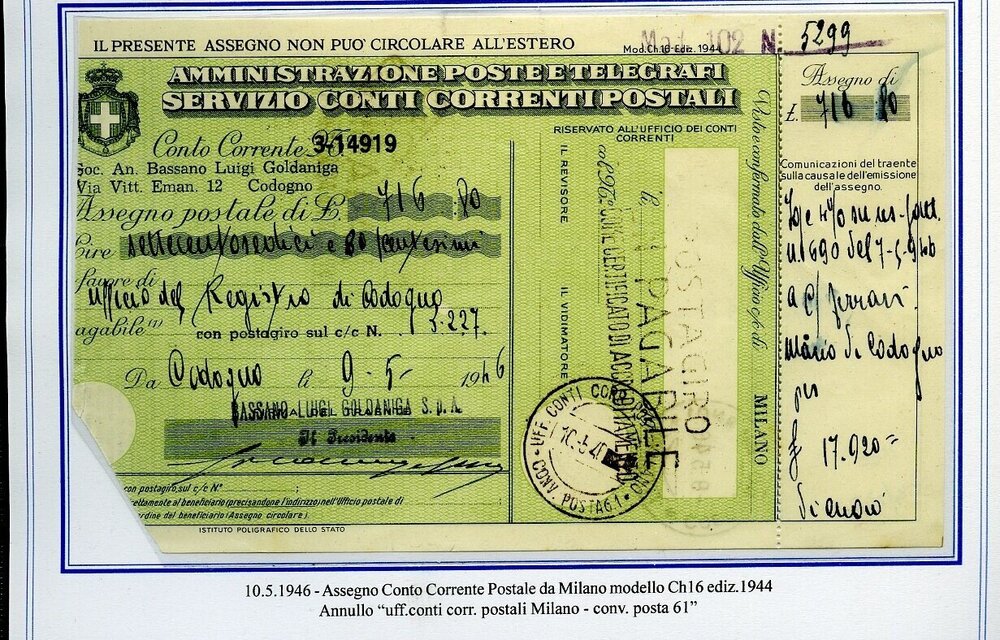 IL PRESENTE ASSEGNO NON PUO' CIRCOLARE ALL'ESTERO
Mod. Ch 16 - Ediz. 1944
Mod. 102 N. 5299
AMMINISTRAZIONE POSTE E TELEGRAFI
SERVIZIO CONTI CORRENTI POSTALI
Conto Corrente 3-14919
Soc. An. Bassano Luigi Goldaniga
Via Vitt. Eman. 12 Codogno
Assegno postale di L. 716 80
Lire settecentosedici e 80/centesimi
favore di
Ufficio del Registro di Codogno
agabile (1) con postagiro sul c/c N. 13.227.
Da Codogno li 9-5- 1946
BASSANO LUIGI GOLDANIGA S.p.A.
Il Presidente
con postagiro, sul c/c N°
ettamente al beneficiario (precisandone l'indirizzo) nell'Ufficio postale di
ordine del beneficiario (Assegno circolare)
ISTITUTO POLIGRAFICO DELLO STATO
RISERVATO ALL'UFFICIO DEI CONTI
CORRENTI
IL REVISORE
IL VIDIMATORE
CERTIFICATO DI ACCREDITAMENTO
N PAGABILE
POSTAGIRO
UFF. CONTI CORR
CONV. POSTA 61
Visto e confermato dall'Ufficio c/c di
MILANO
Assegno di
£. 716 80
Comunicazioni del traente
sulla causale dell'emissione
dell'assegno.
del 7-5-946
a c/ Ferrari
Mario di Codogno
per
£ 17.920=
10.5.1946 - Assegno Conto Corrente Postale da Milano modello Ch16 ediz.1944
Annullo “uff.conti corr. postali Milano - conv. posta 61”